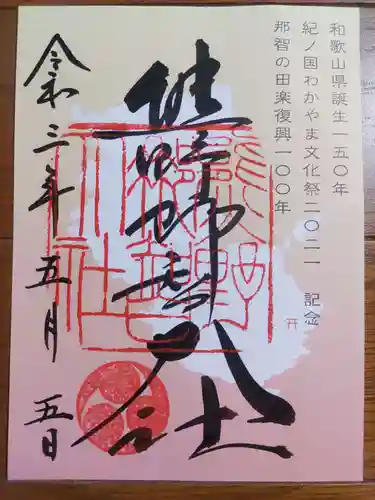 和歌山県誕生一五〇年
紀ノ国わかやま文化祭二〇二一 記念
那智の田楽復興一〇〇年
熊野那智大社
令和三年五月五日